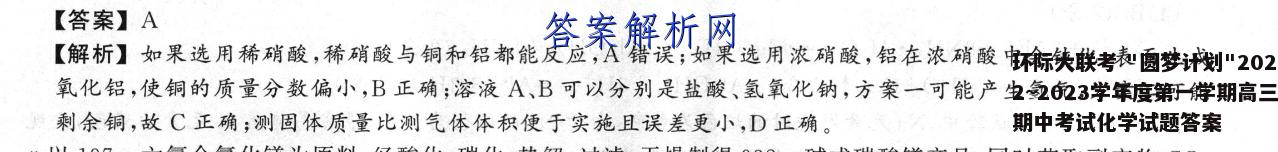 【答案】A
答案解析网
【解析】如果选用稀硝酸,稀硝酸与铜和铝都能反应,A 错误;如果选用浓硝酸,铝在浓硝酸中会钝化,表面生成
氧化铝,使铜的质量分数偏小,B 正确;溶液 A、B 可以分别是盐酸、氢氧化钠,方案一可能产生氢气,
剩余铜,故 C 正确;测固体质量比测气体体积便于实施且误差更小,D 正确。
环际大联考“圆梦计划"202
2~2023学年度第一学期高三
期中考试化学试题答案